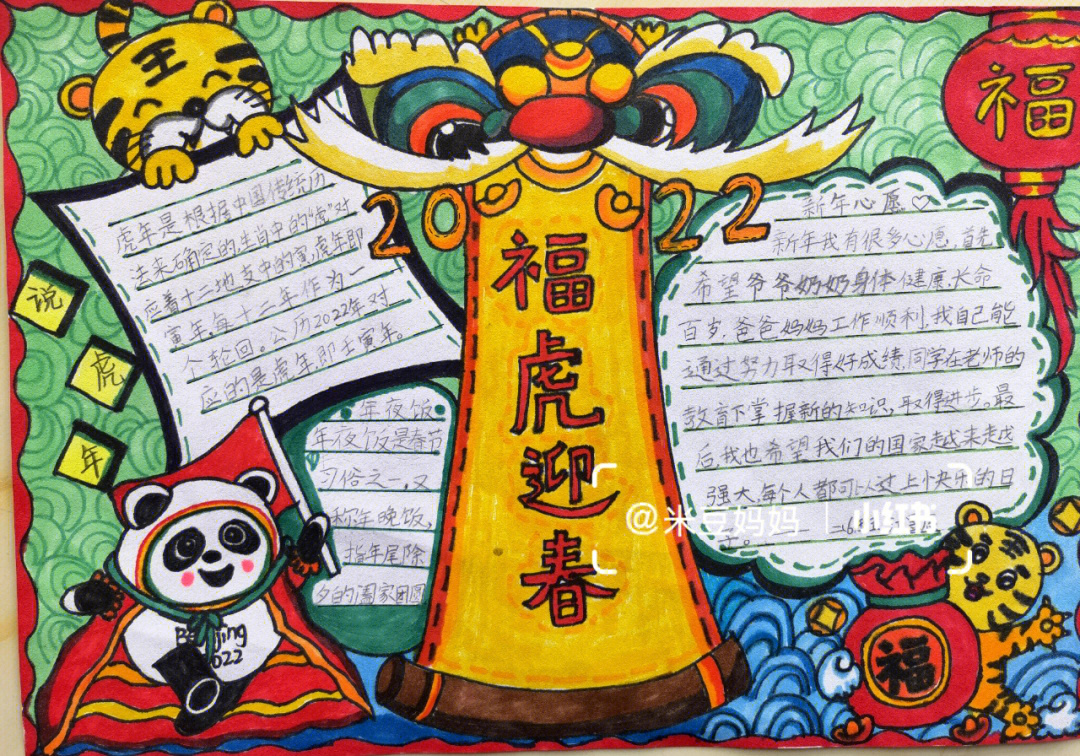 王
福
2022
说
虎
年
虎年是根据中国传统历
法来确定的生肖中的“虎”对
应着十二地支中的寅,虎年即
寅年每十二年作为一
个轮回。公历2022年对
应的是虎年即壬寅年。
福
虎
迎
春
新年心愿♡
新年我有很多心愿,首先
希望爷爷奶奶身体健康,长命
百岁,爸爸妈妈工作顺利,我自己能
通过努力取得好成绩,同学在老师的
教育下掌握新的知识,取得进步。最
后,我也希望我们的国家越来越
强大,每个人都可以过上快乐的日
年夜饭
年夜饭是春节
习俗之一,又
称年晚饭,
指年尾除
夕的阖家团圆
@米豆妈妈 | 小红书
Beijing
2022
福